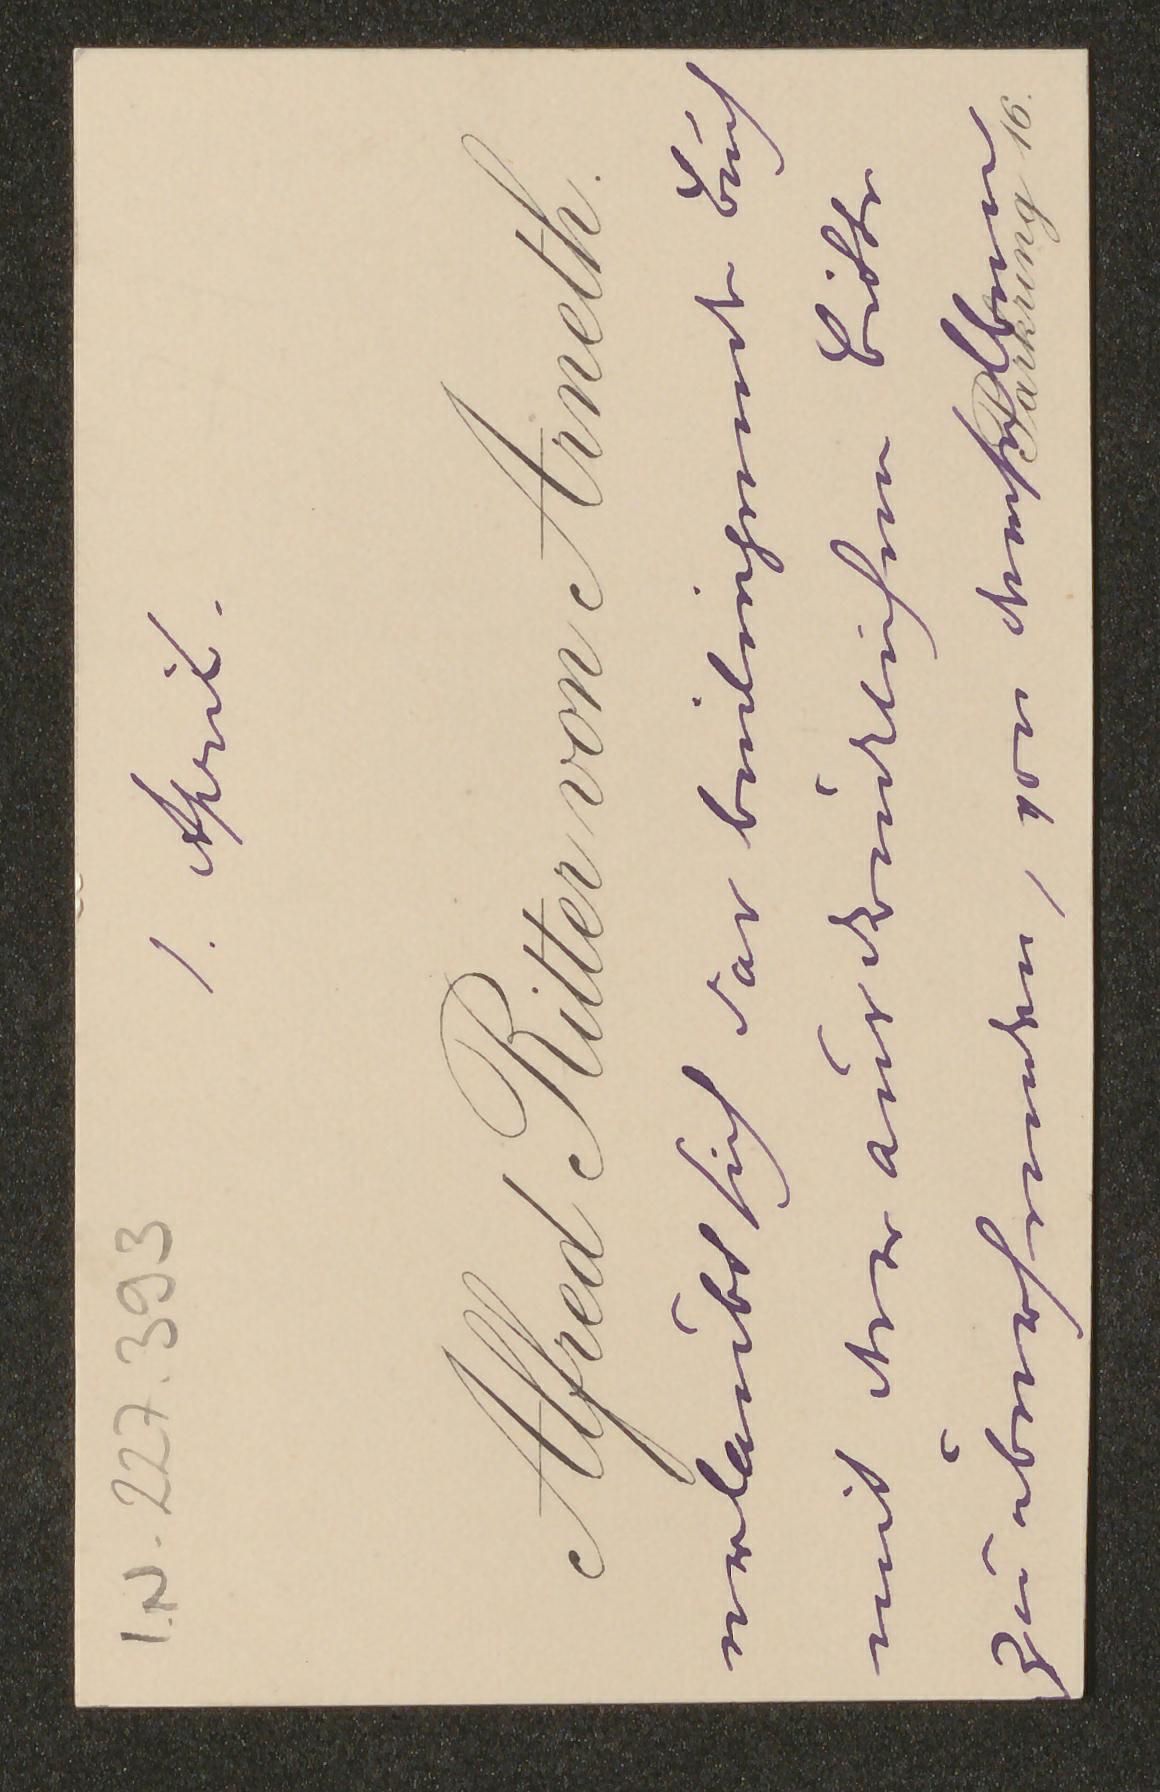 I.N. 227.393
1. April.
Alfred Ritter von Arneth.
erlaubt sich das beiliegende Buch
mit der ausdrücklichen Bitte
zu übersenden, von demselben
Parkring 16.